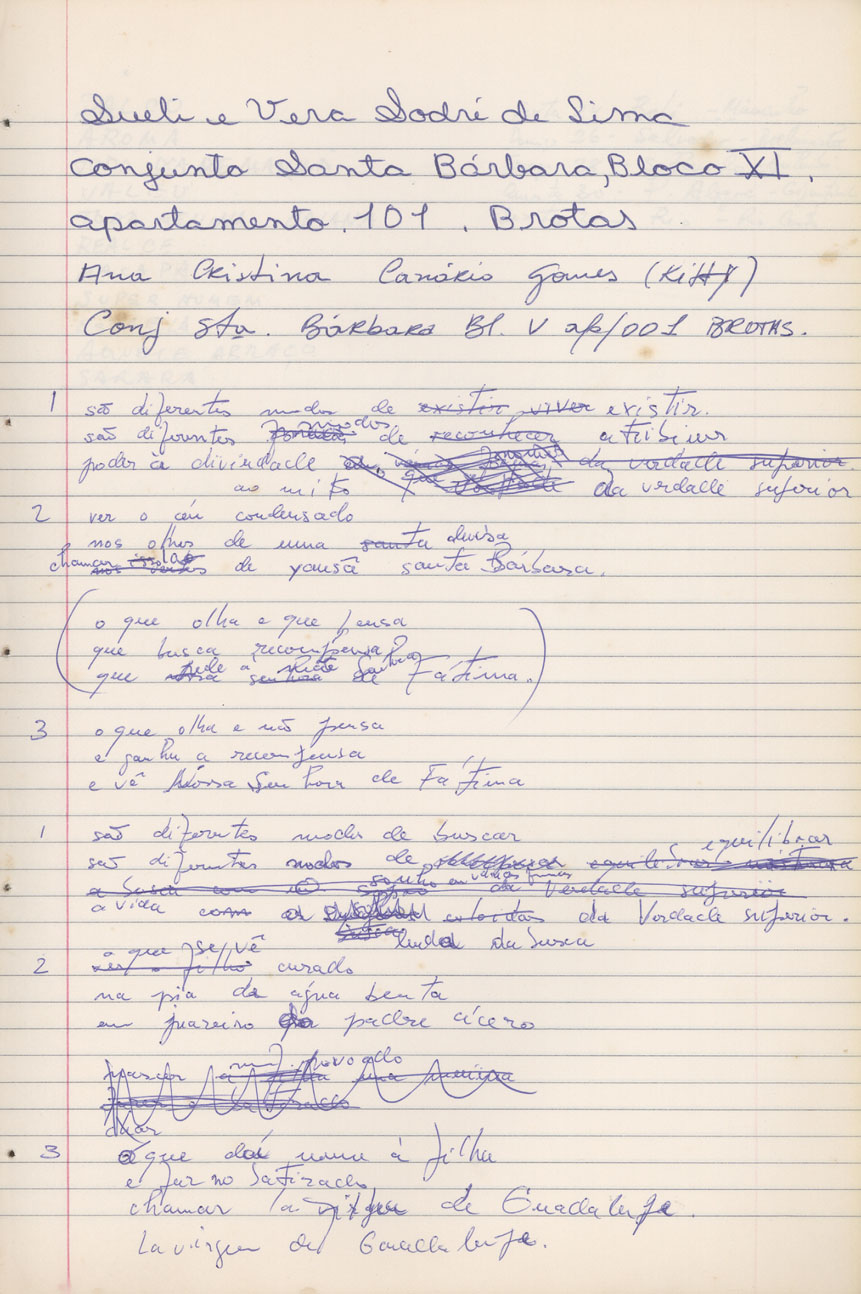 Sueli e Vera Sodré de Lima
Conjunto Santa Bárbara, Bloco XI.
apartamento. 101. Brotas
Ana Cristina Canário Gomes (Kitty)
Conj Sta. Bárbara Bl. V ap/001 BROTAS.
1 são diferentes modos de existir viver existir.
modos
são diferentes de reconhecer atribuir
poder à divindade da verdade superior.
ao mito da verdade superior
2 ver o céu condensado
nos olhos de uma santa deusa
chamar de yansã santa Bárbara.
(o que olha e que pensa
que busca recompensa
que pede à senhora de Fátima.)
3 o que olha e não pensa
e ganha a recompensa
e vê Nossa Senhora de Fátima
1 são diferentes modos de buscar
equilibrar
são diferentes modos de
a busca com o sonho em várias formas da verdade superior
a vida com os da Verdade superior.
da busca
o que se vê
2 ver o filho curado
na pia da água benta
em juazeiro do padre cícero
num povoado
3 o que dá nome à filha
e faz no
chamar la virgen de Guadalupe.
La virgen de Guadalupe.